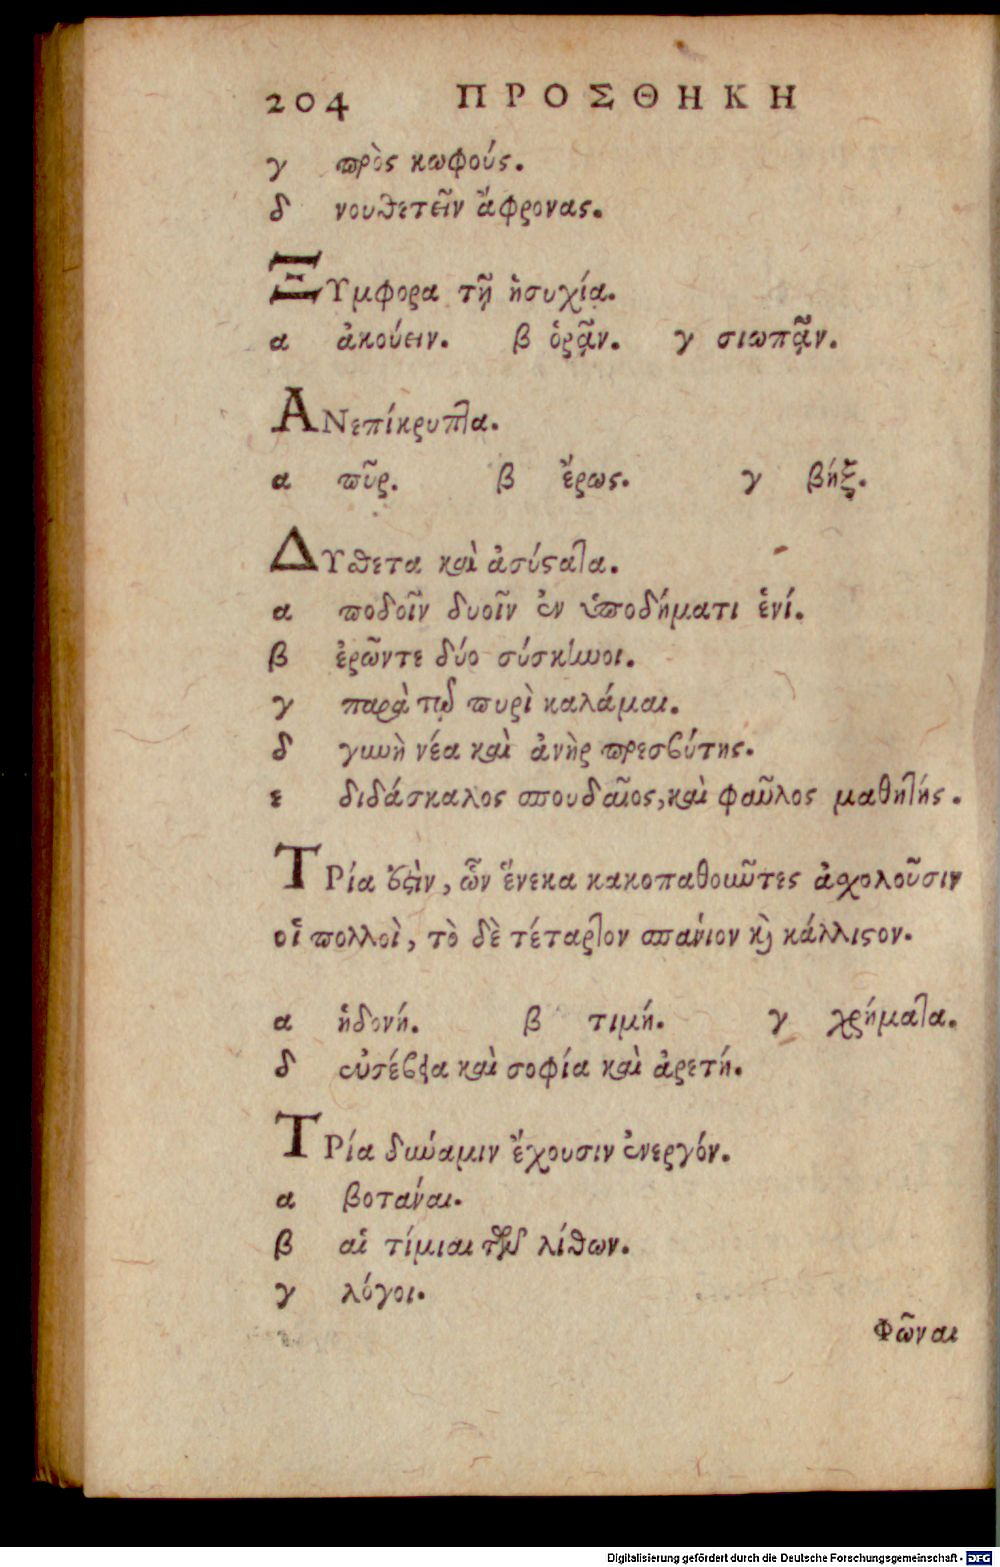 204 ΠΡΟΣΘΗΚΗ
γ πρὸς κωφούς.
δ νουθετεῖν ἄφρονας.
ΞΥμφορα τῇ ἡσυχίᾳ.
α ἀκούειν. β ὁρᾷν. γ σιωπᾷν.
ΑΝεπίκρυπτα.
α πῦρ. β ἔρως. γ βήξ.
ΔΥσθετα καὶ ἀσύστατα.
α ποδοῖν δυοῖν ἐν ὑποδήματι ἑνί.
β ἐρῶντε δύο σύσκηνοι.
γ παρὰ τῷ πυρὶ καλάμαι.
δ γυνὴ νέα καὶ ἀνὴρ πρεσβύτης.
ε διδάσκαλος σπουδαῖος, καὶ φαῦλος μαθητής.
ΤΡία ἐστὶν, ὧν ἕνεκα κακοπαθοῦντες ἀσχολοῦσιν
οἱ πολλοὶ, τὸ δὲ τέταρτον σπάνιον καὶ κάλλιστον.
α ἡδονή. β τιμή. γ χρήματα.
δ εὐσέβεια καὶ σοφία καὶ ἀρετή.
ΤΡία δύναμιν ἔχουσιν ἐνεργόν.
α βοτάναι.
β αἱ τίμιαι τῶν λίθων.
γ λόγοι.
Φῶναι
Digitalisierung gefördert durch die Deutsche Forschungsgemeinschaft - DFG